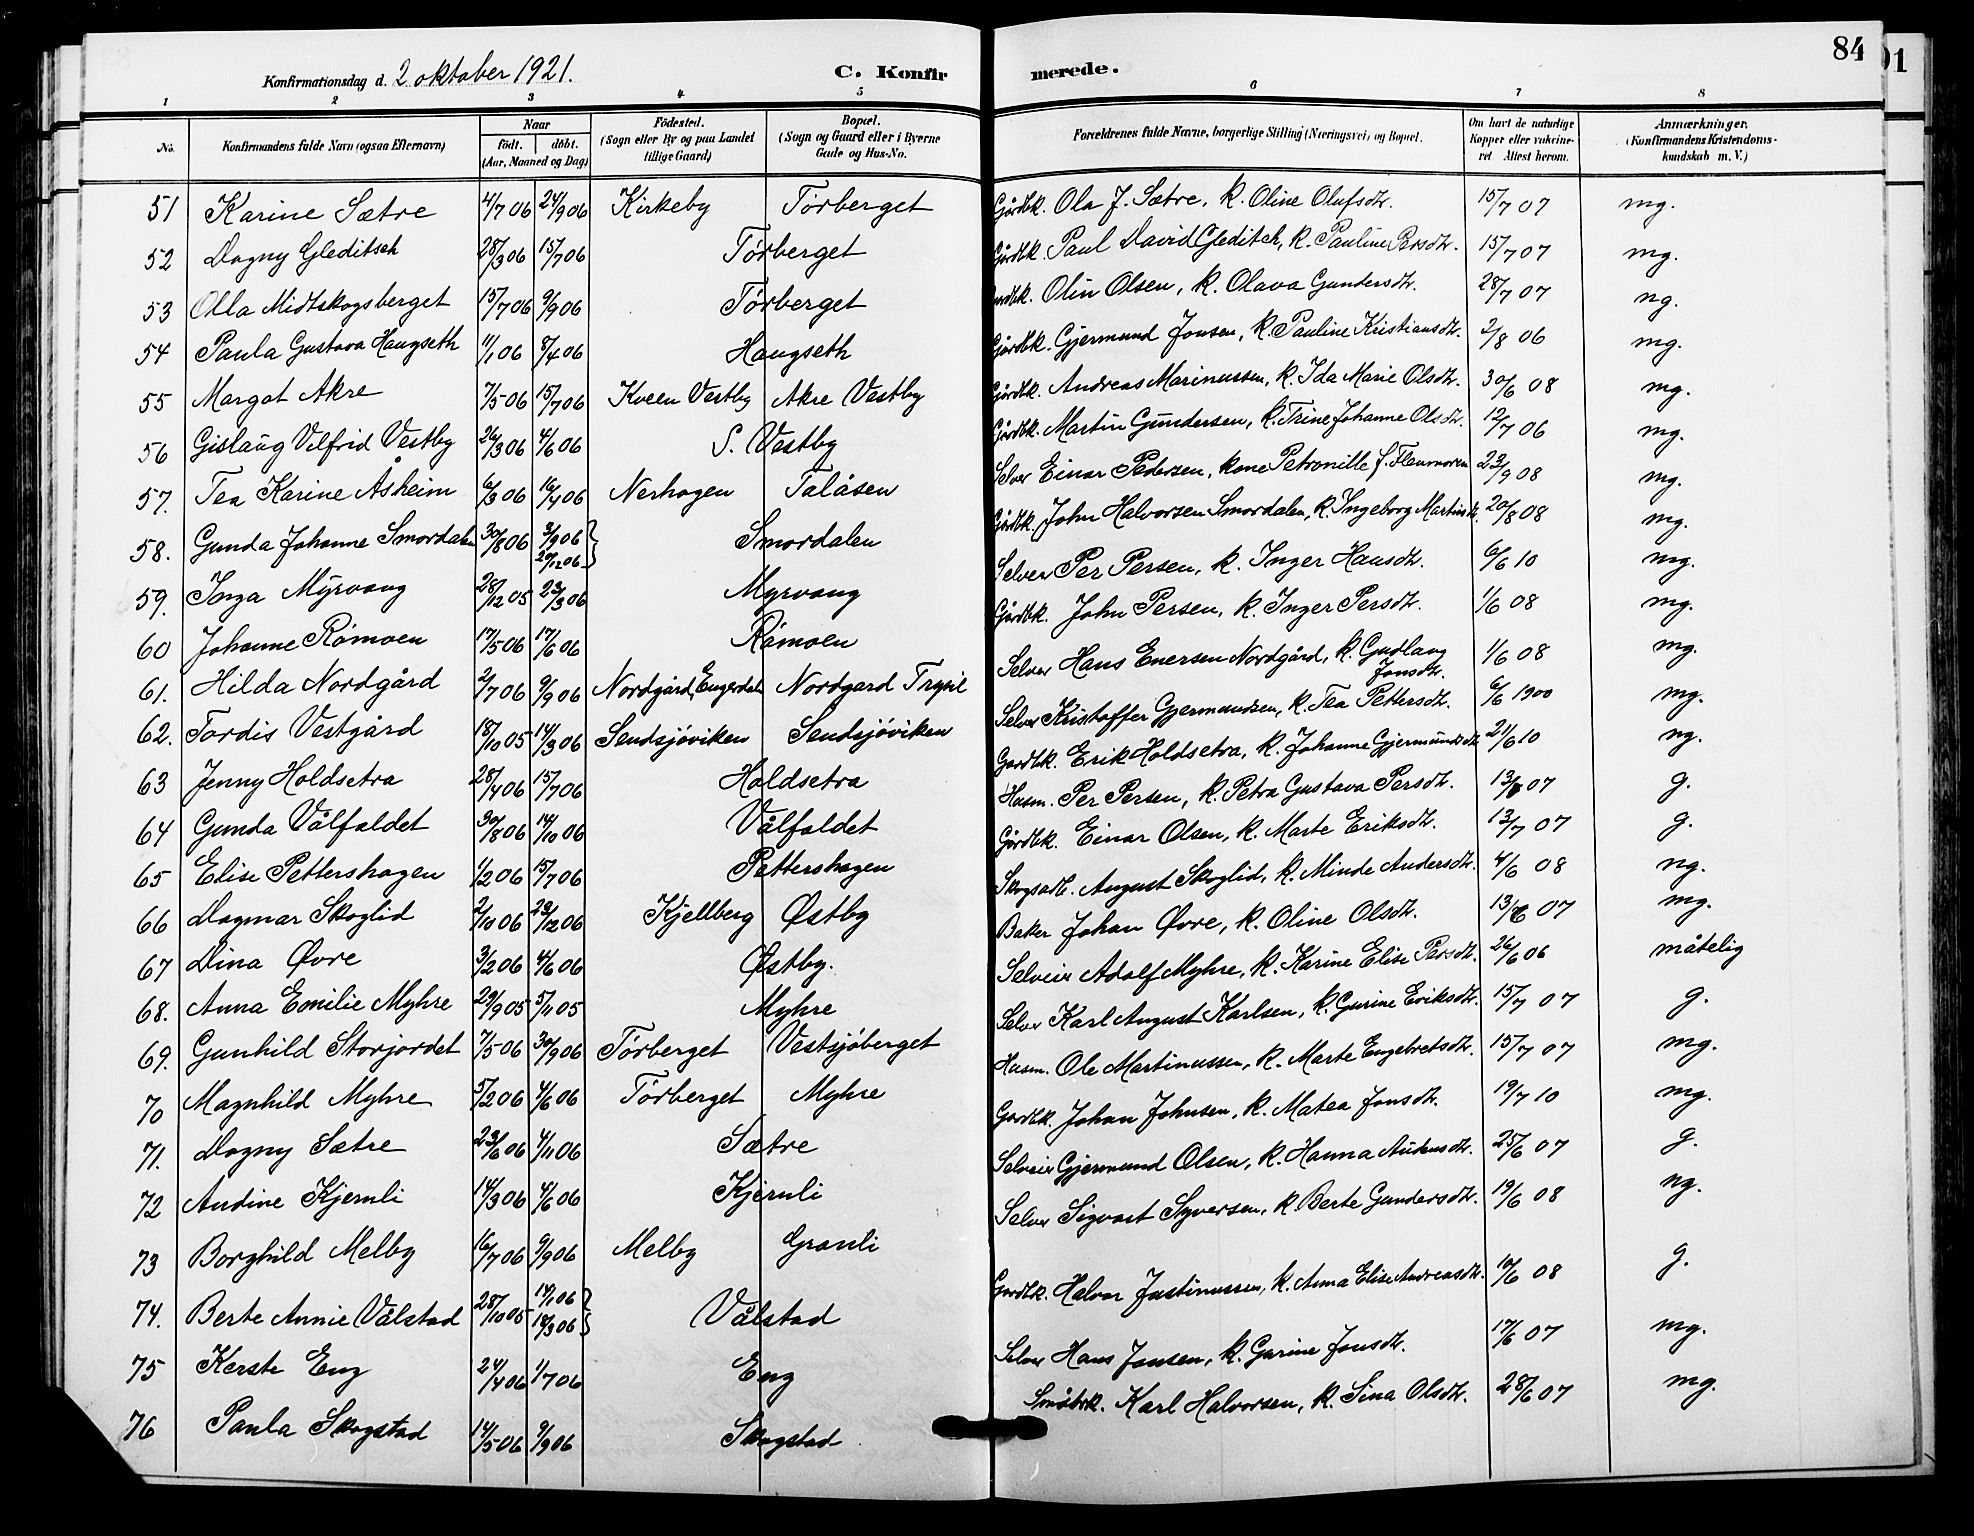 84
91
Konfirmationsdag d. 2 oktober 1921.
C. Konfirmerede.
1 2 3 4 5 6 7 8
No.
Konfirmandens fulde Navn (ogsaa Efternavn)
Naar født. døbt. (Aar, Maaned og Dag)
Fødested. (Sogn eller By og paa Landet tillige Gaard)
Bopæl. (Sogn og Gaard eller i Byerne Gade og Hus-No.
Forældrenes fulde Navne, borgerlige Stilling (Næringsvei) og Bopæl.
Om havt de naturlige Kopper eller vakcineret Attest herom.
Anmærkninger. (Konfirmandens Kristendomskundskab m. V.)
51 Karine Sætre 4/7 06 24/9 06 Kirkeby Tørberget Gårdbk. Ola J. Sætre, k. Oline Olufsdtr. 15/7 07 mg.
52 Dagny Gleditsch 28/3 06 15/7 06 Tørberget Gårdbk. Paul David Gleditch, k. Pauline Persdtr. 15/7 07 mg.
53 Olla Midtskogsberget 15/7 06 9/9 06 Tørberget Gårdbk. Olin Olsen, k. Olava Gundersdtr. 28/7 07 ng.
54 Paula Gustava Haugseth 11/1 06 8/4 06 Haugseth Gårdbk. Gjermund Jonsen, k. Pauline Kristiansdtr. 2/8 06 mg.
55 Margot Akre 7/5 06 15/7 06 Kveen Vestby Akre Vestby Gårdbk. Andreas Marinussen, k. Ida Marie Olsdtr. 30/6 08 mg.
56 Gislaug Vilfrid Vestby 26/3 06 4/6 06 S. Vestby Gårdbk. Martin Gundersen, k. Trine Johanne Olsdtr. 12/7 06 mg.
57. Tea Karine Åsheim 6/3 06 16/4 06 Nerhagen Talåsen Selver Einar Pedersen, kone Petronille f. Flenmoren 23/9 08 mg.
58. Gunda Johanne Smordalen 30/8 06 3/9 06 Smordalen Gårdbk. John Halvorsen Smordalen, k. Ingeborg Martinsdtr. 20/8 08 mg.
27/12 06
59. Inga Myrvang 28/12 05 23/3 06 Myrvang Selver Per Persen, k. Inger Hansdtr. 6/6 10 mg.
60 Johanne Rømoen 17/5 06 17/6 06 Rømoen Gårdbk. John Persen, k. Inger Persdtr. 1/6 08 mg.
61. Hilda Nordgård 2/7 06 9/9 06 Nordgård, Engerdal Nordgard Trysil Selver Hans Enersen Nordgård, k. Gudlaug Jonsdtr. 1/6 08 mg.
62. Tordis Vestgård 18/10 05 14/3 06 Sendsjøviken Sendsjøviken Selver Kristoffer Gjermundsen, k. Tea Pettersdtr. 6/6 1900 mg.
63 Jenny Holdsetra 28/4 06 15/7 06 Holdsetra Gardbk. Erik Holdsetra, k. Johanne Gjermundsdtr. 21/6 10 ng.
64 Gunda Vålfaldet 30/8 06 14/10 06 Vålfaldet Husm. Per Persen, k. Petra Gustava Persdtr. 13/ 07 g.
65 Elise Pettershagen 1/2 06 15/7 06 Pettershagen Gårdbk. Einar Olsen, k. Marte Eriksdtr. 13/7 07 g.
66 Dagmar Skoglid 2/10 06 23/12 06 Kjellberg Østby Skogsarb. August Skoglid, k. Minde Andersdtr. 4/6 08 ng.
67 Dina Øvre 3/2 06 4/6 06 Østby. Baker Johan Øvre, k. Oline Olsdtr. 13/6 07 mg.
68. Anna Emilie Myhre 29/9 05 5/11 05 Myhre Selveier Adolf Myhre, k. Karine Elise Persdtr. 26/6 06 måtelig
69. Gunhild Storjordet 7/5 06 30/9 06 Tørberget Vestsjøberget Selver Karl August Karlsen, k. Gurine Eriksdtr. 15/7 07 g.
70 Magnhild Myhre 5/2 06 4/6 06 Tørberget Myhre Husm. Ole Martinussen, k. Marte Engebretsdtr. 15/7 07 mg.
71. Dagny Sætre 23/6 06 4/11 06 Sætre Gardbk. Johan Johnsen, k. Matea Jonsdtr. 19/7 10 mg.
72 Andine Kjernli 14/3 06 4/6 06 Kjernli Selveier Gjermund Olsen, k. Hanna Audensdtr. 25/6 07 g.
73 Borghild Melby 16/7 06 9/9 06 Melby Granli Selver Sigvart Syversen, k. Berte Gundersdtr. 19/6 08 ng.
74. Berte Annie Vålstad 28/10 05 14/1 06 Vålstad Gardbk. Halvor Justinussen, k. Anna Elise Andreasdtr. 10/6 08 g.
18/3 06
75 Kerste Eng 24/4 06 1/7 06 Eng Selver Hans Jonsen, k. Gurine Jonsdtr. 17/6 07 mg.
76 Paula Skogstad 14/5 06 9/9 06 Skogstad Småbrk. Karl Halvorsen, k. Sina Olsdtr. 28/6 07 mg.